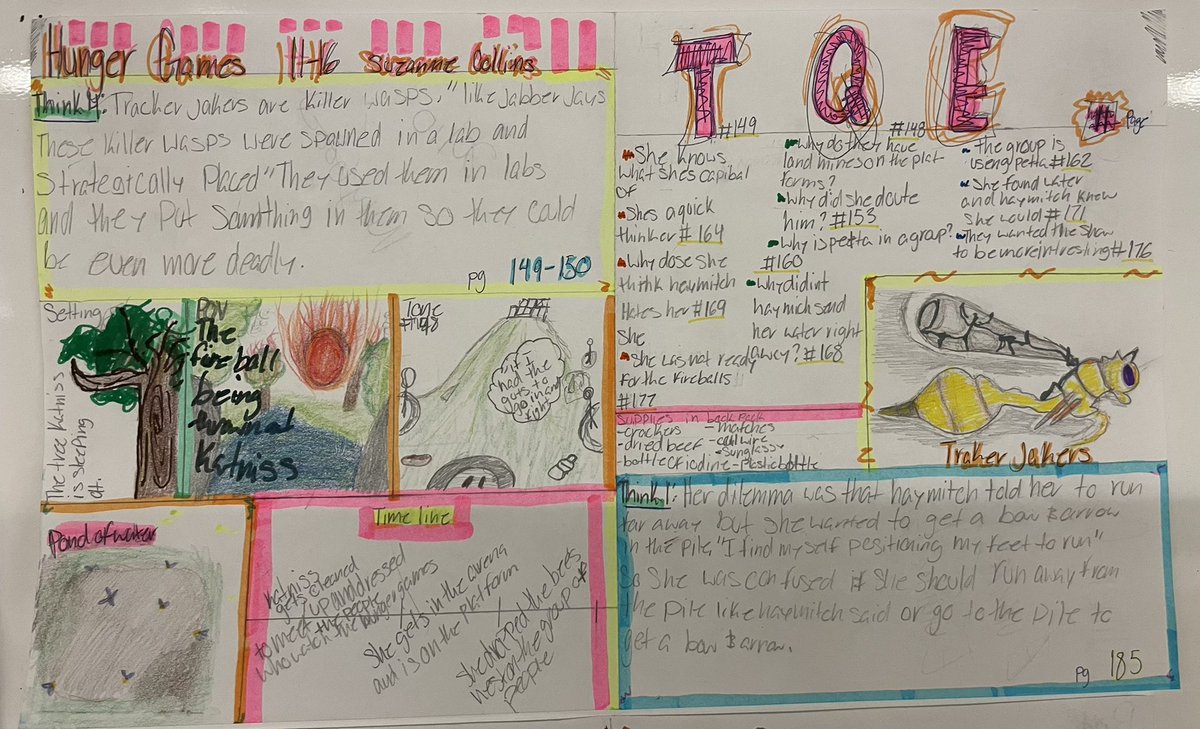 Hunger Games 11-16 Suzanne Collins
Think 4: Tracker jakers are killer wasps. "like jabber jays
These killer wasps were spawned in a lab and
strategically placed" They used them in labs
and they put somthing in them so they could
be even more deadly.
pg 149-150
Setting
The tree Katniss
is sleeping
on.
POV
The
fireball
being
Katniss
Tone
if i
had the
guts to
T Q E # Page
#149
She knows
what shes capibal
of
Shes a quick
thinker #164
Why dose she
think haymitch
Hates her #169
She
She was not ready
for the fireballs
#177
#148
Why do they have
land mines on the plat
forms?
Why did she dcute
him? #153
Why is peeta in a group?
#160
Why didint
haymich send
her water right
away? #168
The group is
useng petta #162
She found water
and haymitch knew
she would #171
They wanted the show
to be more intresting #176
Supplies in back pack
-crackers -matches
-dried beef -coil wire
-sunglass
-bottle of iodine -plastic bottle
Traker Jakers
Pond of water
Time line
Katniss
gets cleaned
up and dressed
to meet the people
who watch the Hunger games
She gets in the arena
and is on the platform
She dropped the bees
nest on the group of
people
Think 1: Her dilemma was that haymitch told her to run
far away but she wanted to get a bow & arrow
in the pile "I find my self positioning my feet to run"
So she was confused if she should run away from
the pile like haymitch said or go to the pile to
get a bow & arrow.
pg 185